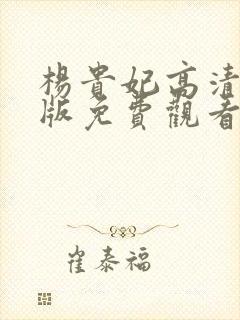 楊貴妃高清
版免費觀看
崔泰福